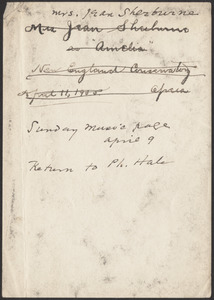 Mrs. Jean Sherburne
Mrs Jean Sherburne
as Amelia
New England Conservatory
April 11, Opera
Sunday music page
April 9
Return to Ph. Hale